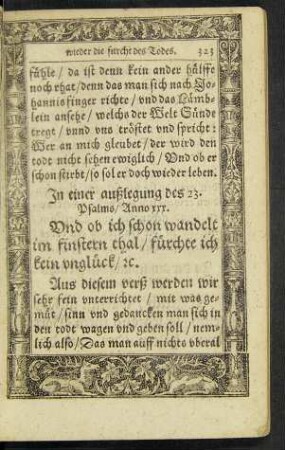 wieder die furcht des Todes. 323
fühle / da ist denn kein ander hülffe
noch rhat / denn das man sich nach Jo-
hannis finger richte / vnd das Lämb-
lein ansehe / welchs der Welt Sünde
tregt / vnnd vns tröstet vnd spricht:
Wer an mich gleubet / der wird den
todt nicht sehen ewiglich / Vnd ob er
schon stirbt / so sol er doch wieder leben.
In einer außlegung des 23.
Psalms / Anno xxx.
Vnd ob ich schon wandelt
im finstern thal / fürchte ich
kein vnglück / ꝛc.
Aus diesem verß werden wir
sehr fein vnterrichtet / mit was ge-
müt / sinn vnd gedancken man sich in
den todt wagen vnd geben soll / nem-
lich also / Das man auff nichts vberal